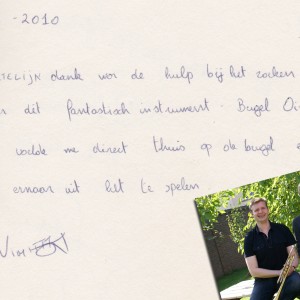 -2010
TELIJN dank vor de hulp bij het zoeken
dit fantastisch instrument. Bugel Oi
voelde me direct thuis op de bugel e
ernaar uit het te spelen